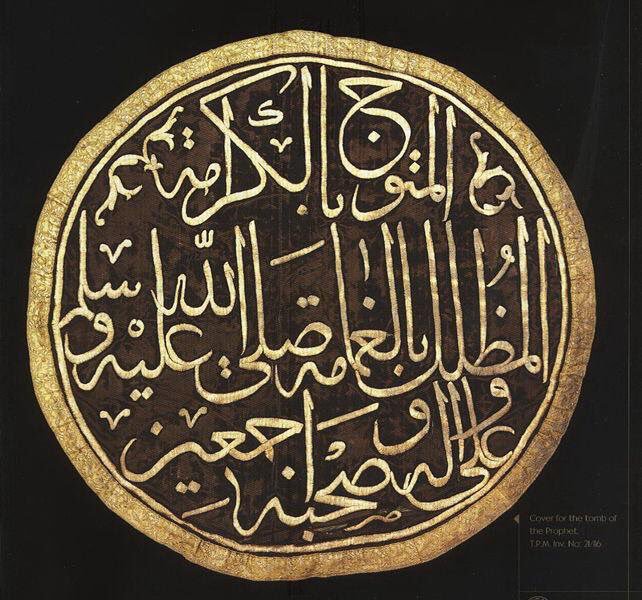 المتوج بالكرامة
المظلل بالغمامة صلى الله عليه وسلم
وعلى اله وصحبه اجمعين
Cover for the tomb of
the Prophet.
T.P.M. Inv. No: 21/16